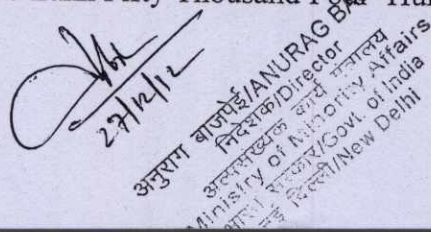 Fifty Thousand Four
27/12/12
अनुराग बाजपेई/ANURAG BA
निदेशक/Director
अल्पसंख्यक कार्य मंत्रालय
Ministry of Minority Affairs
भारत सरकार/Govt. of India
नई दिल्ली/New Delhi